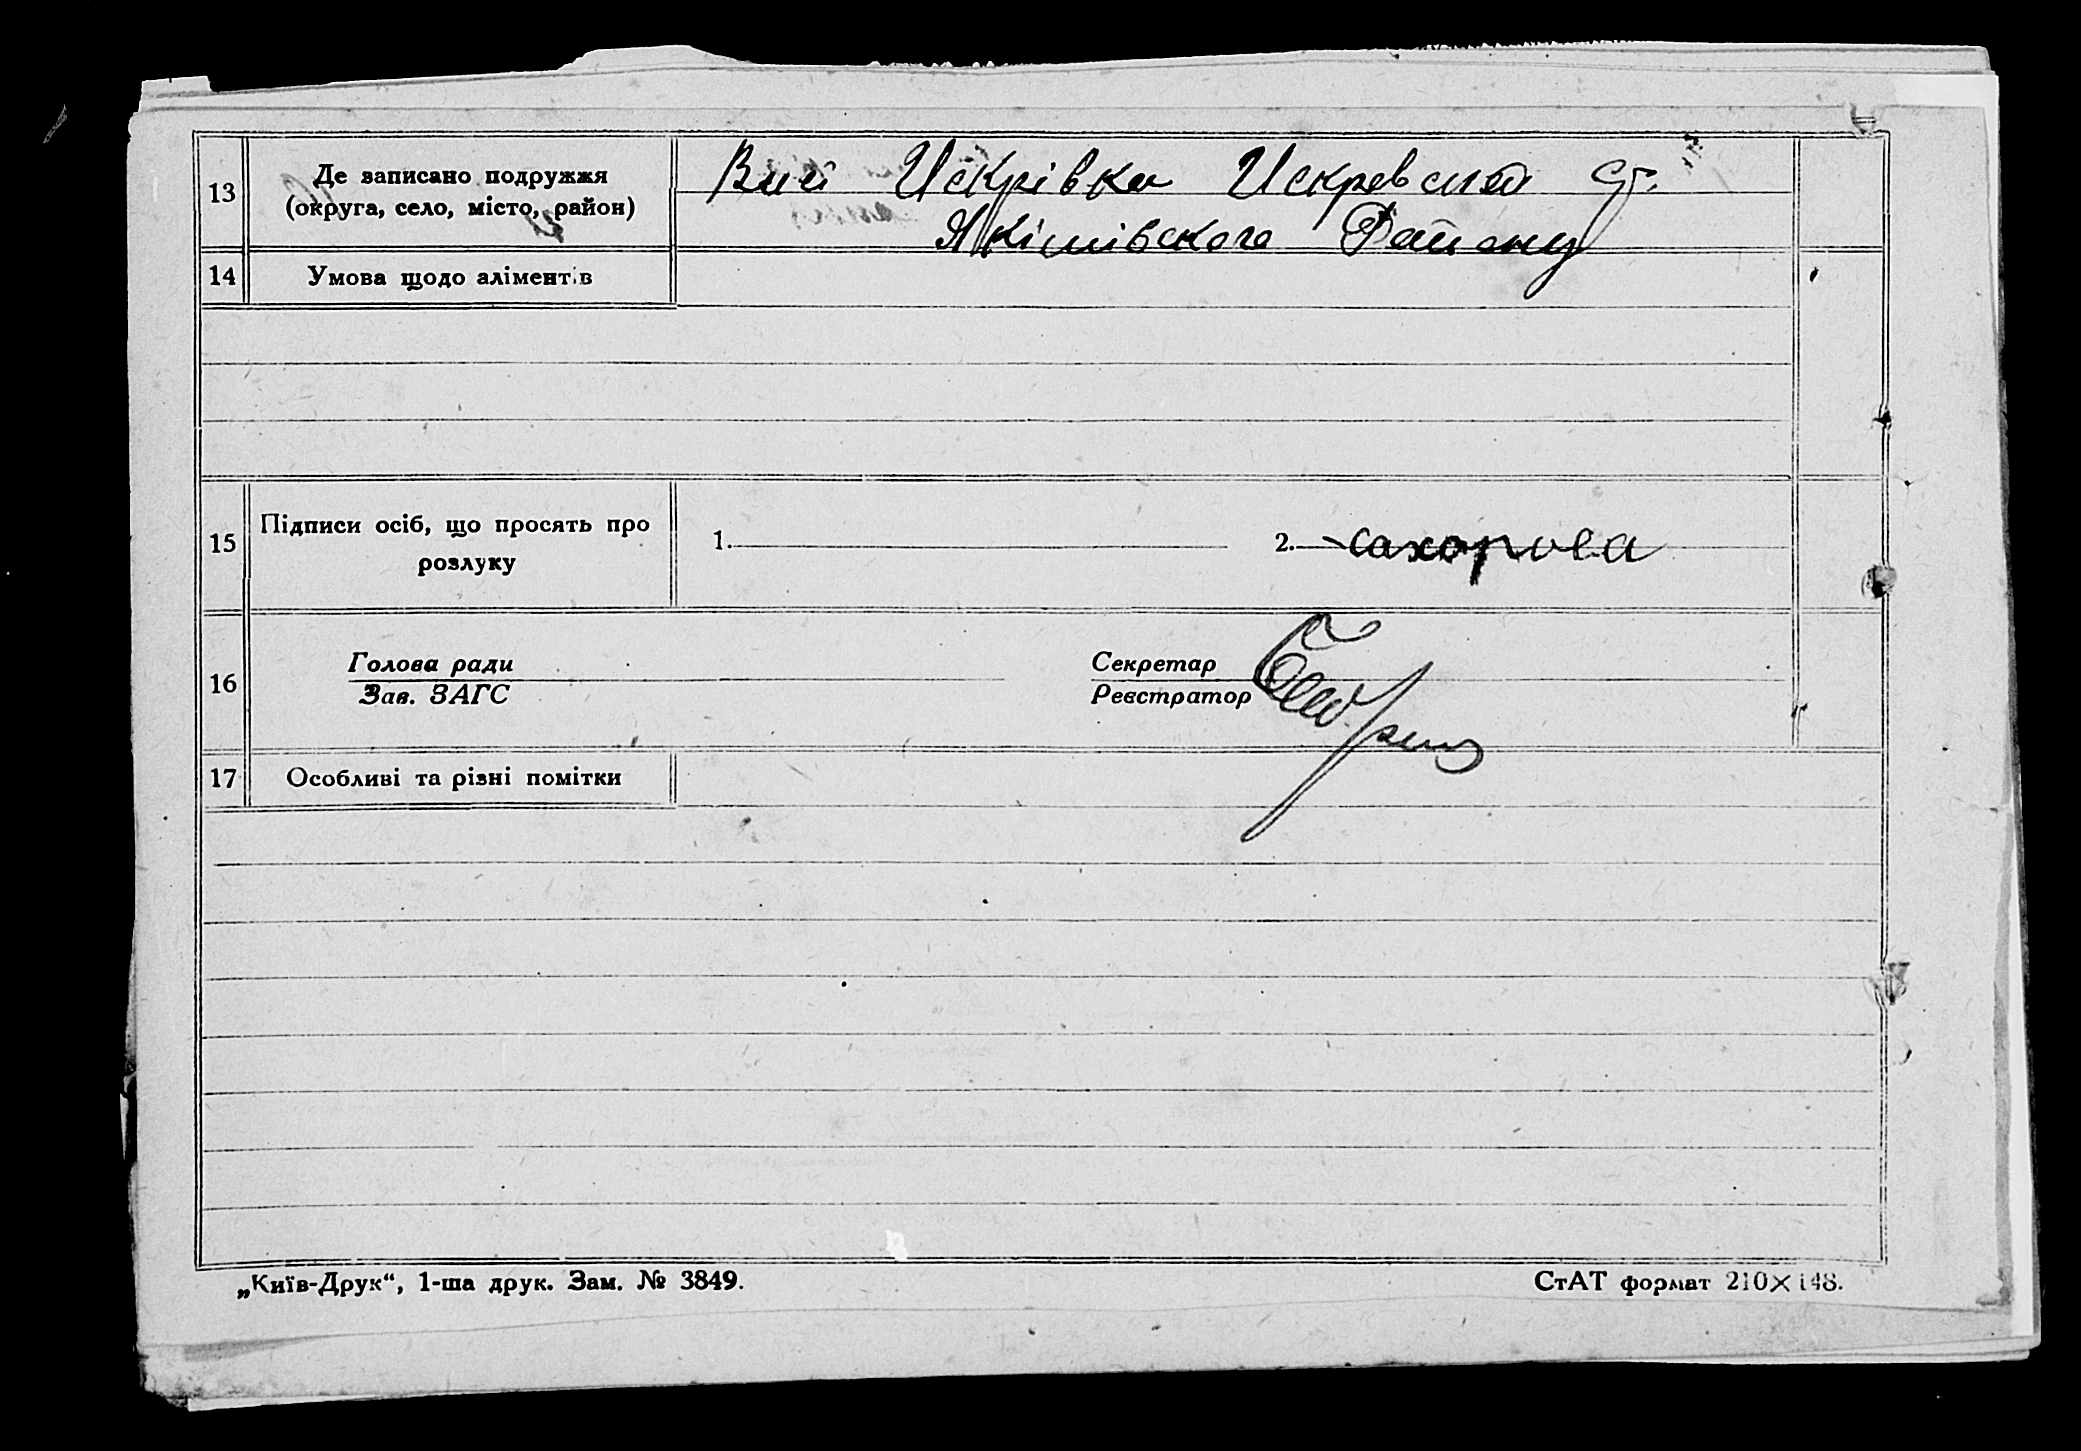 13 Де записано подружжя
(округа, село, місто, район)
Искрівка Искревской
Якімівского Району
14 Умова щодо аліментів
15 Підписи осіб, що просять про
розлуку
1. 2. сахорова
16 Голова ради Секретар
Зав. ЗАГС Реєстратор
17 Особливі та різні помітки
„Київ-Друк“, 1-ша друк. Зам. № 3849. СтАТ формат 210×148.